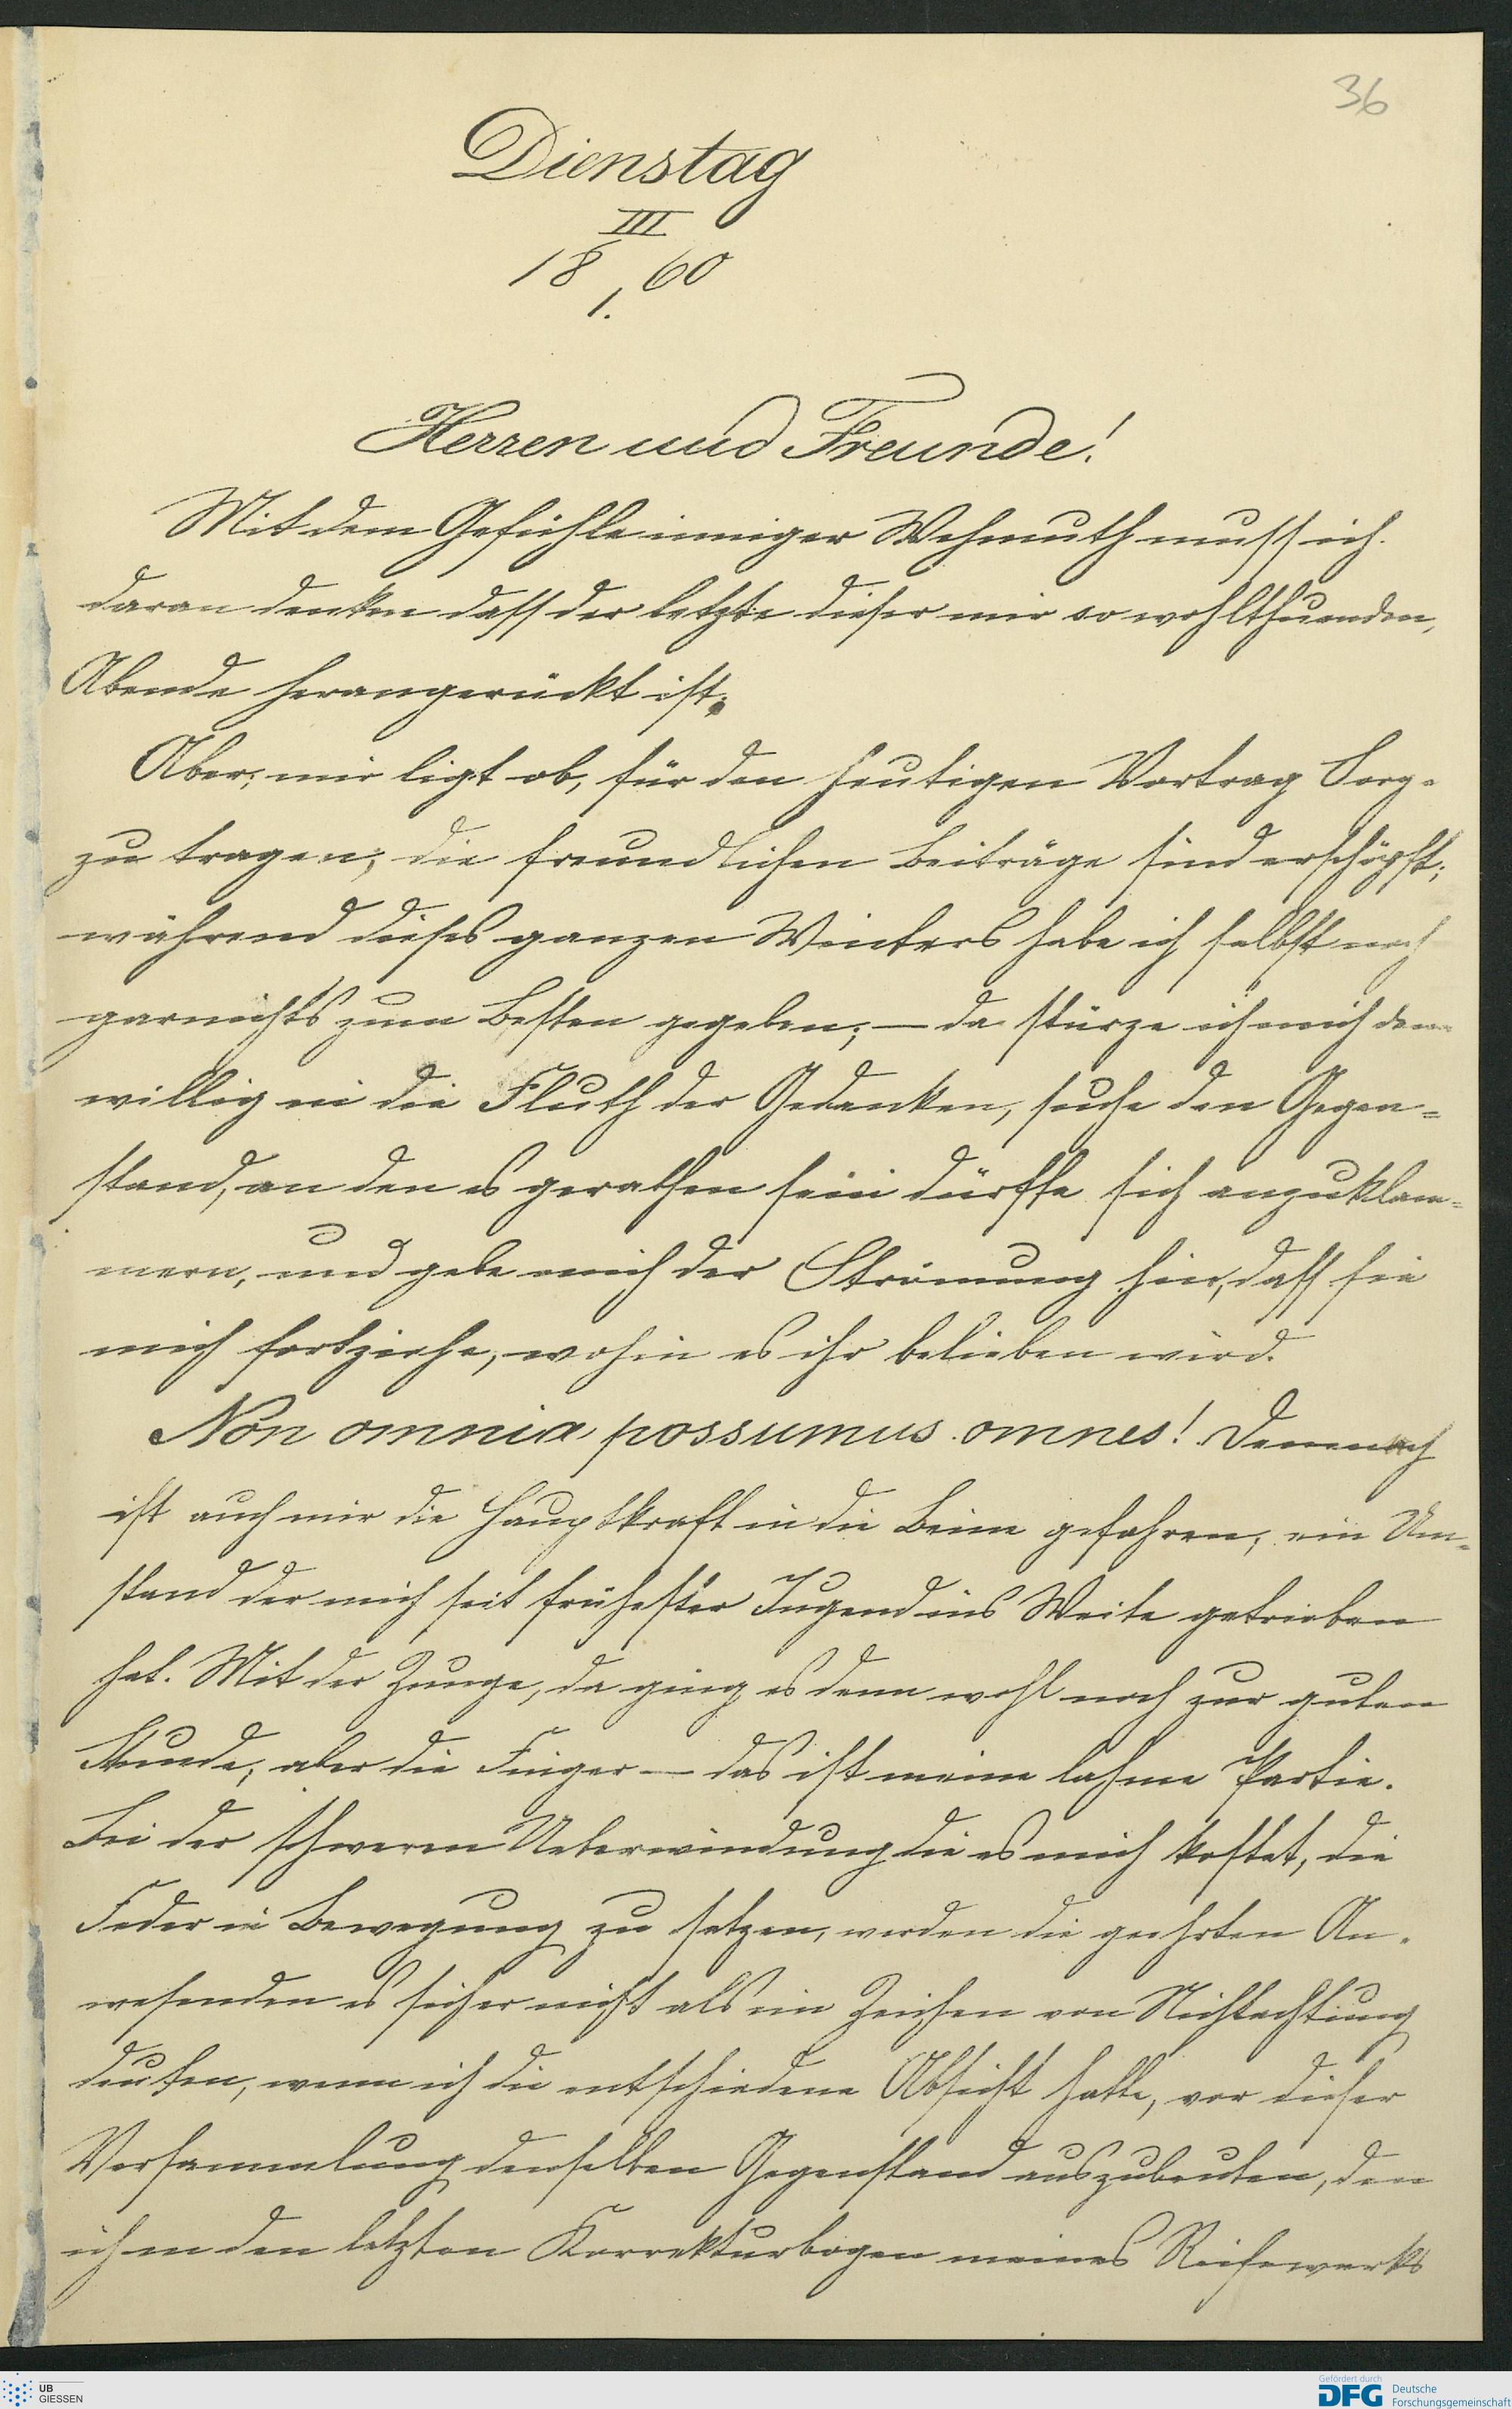 36
Dienstag
III
18 60
1.
Herren und Freunde!
Mit dem Gefühle inniger Wehmuth muss ich
daran denken dass der letzte dieser mir so wohlthuenden,
Abende herangerückt ist.
Aber, mir ligt ob, für den heutigen Vortrag Sorg-
zu tragen; die freundlichen Beiträge sind erschöpft;
während dieses ganzen Winters habe ich selbst noch
garnichts zum Besten gegeben; — da stürze ich mich denn
willig in die Fluth der Gedanken, suche den Gegen=
stand, an den es gerathen sein dürfte sich anzuklam=
mern, und gebe mich der Strömung hin, dass sie
mich fortziehe, wohin es ihr belieben wird.
Non omnia possumus omnes! Demnach
ist auch mir die Hauptkraft in die Beine gefahren, ein Um=
stand der mich seit frühester Jugend ins Weite getrieben
hat. Mit der Zunge, da ging es denn wohl noch zur guten
Stunde, aber die Finger — das ist meine lahme Partie.
Bei der schweren Ueberwindung die es mich kostet, die
Feder in Bewegung zu setzen, werden die geehrten An-
wesenden es sicher nicht als ein Zeichen von Nichtachtung
deuten, wenn ich die entschiedene Absicht hatte, vor dieser
Versammlung denselben Gegenstand auszubeuten, den
ich in den letzten Korrekturbogen meines Reisewerks
UB
GIESSEN
Gefördert durch
DFG Deutsche
Forschungsgemeinschaft